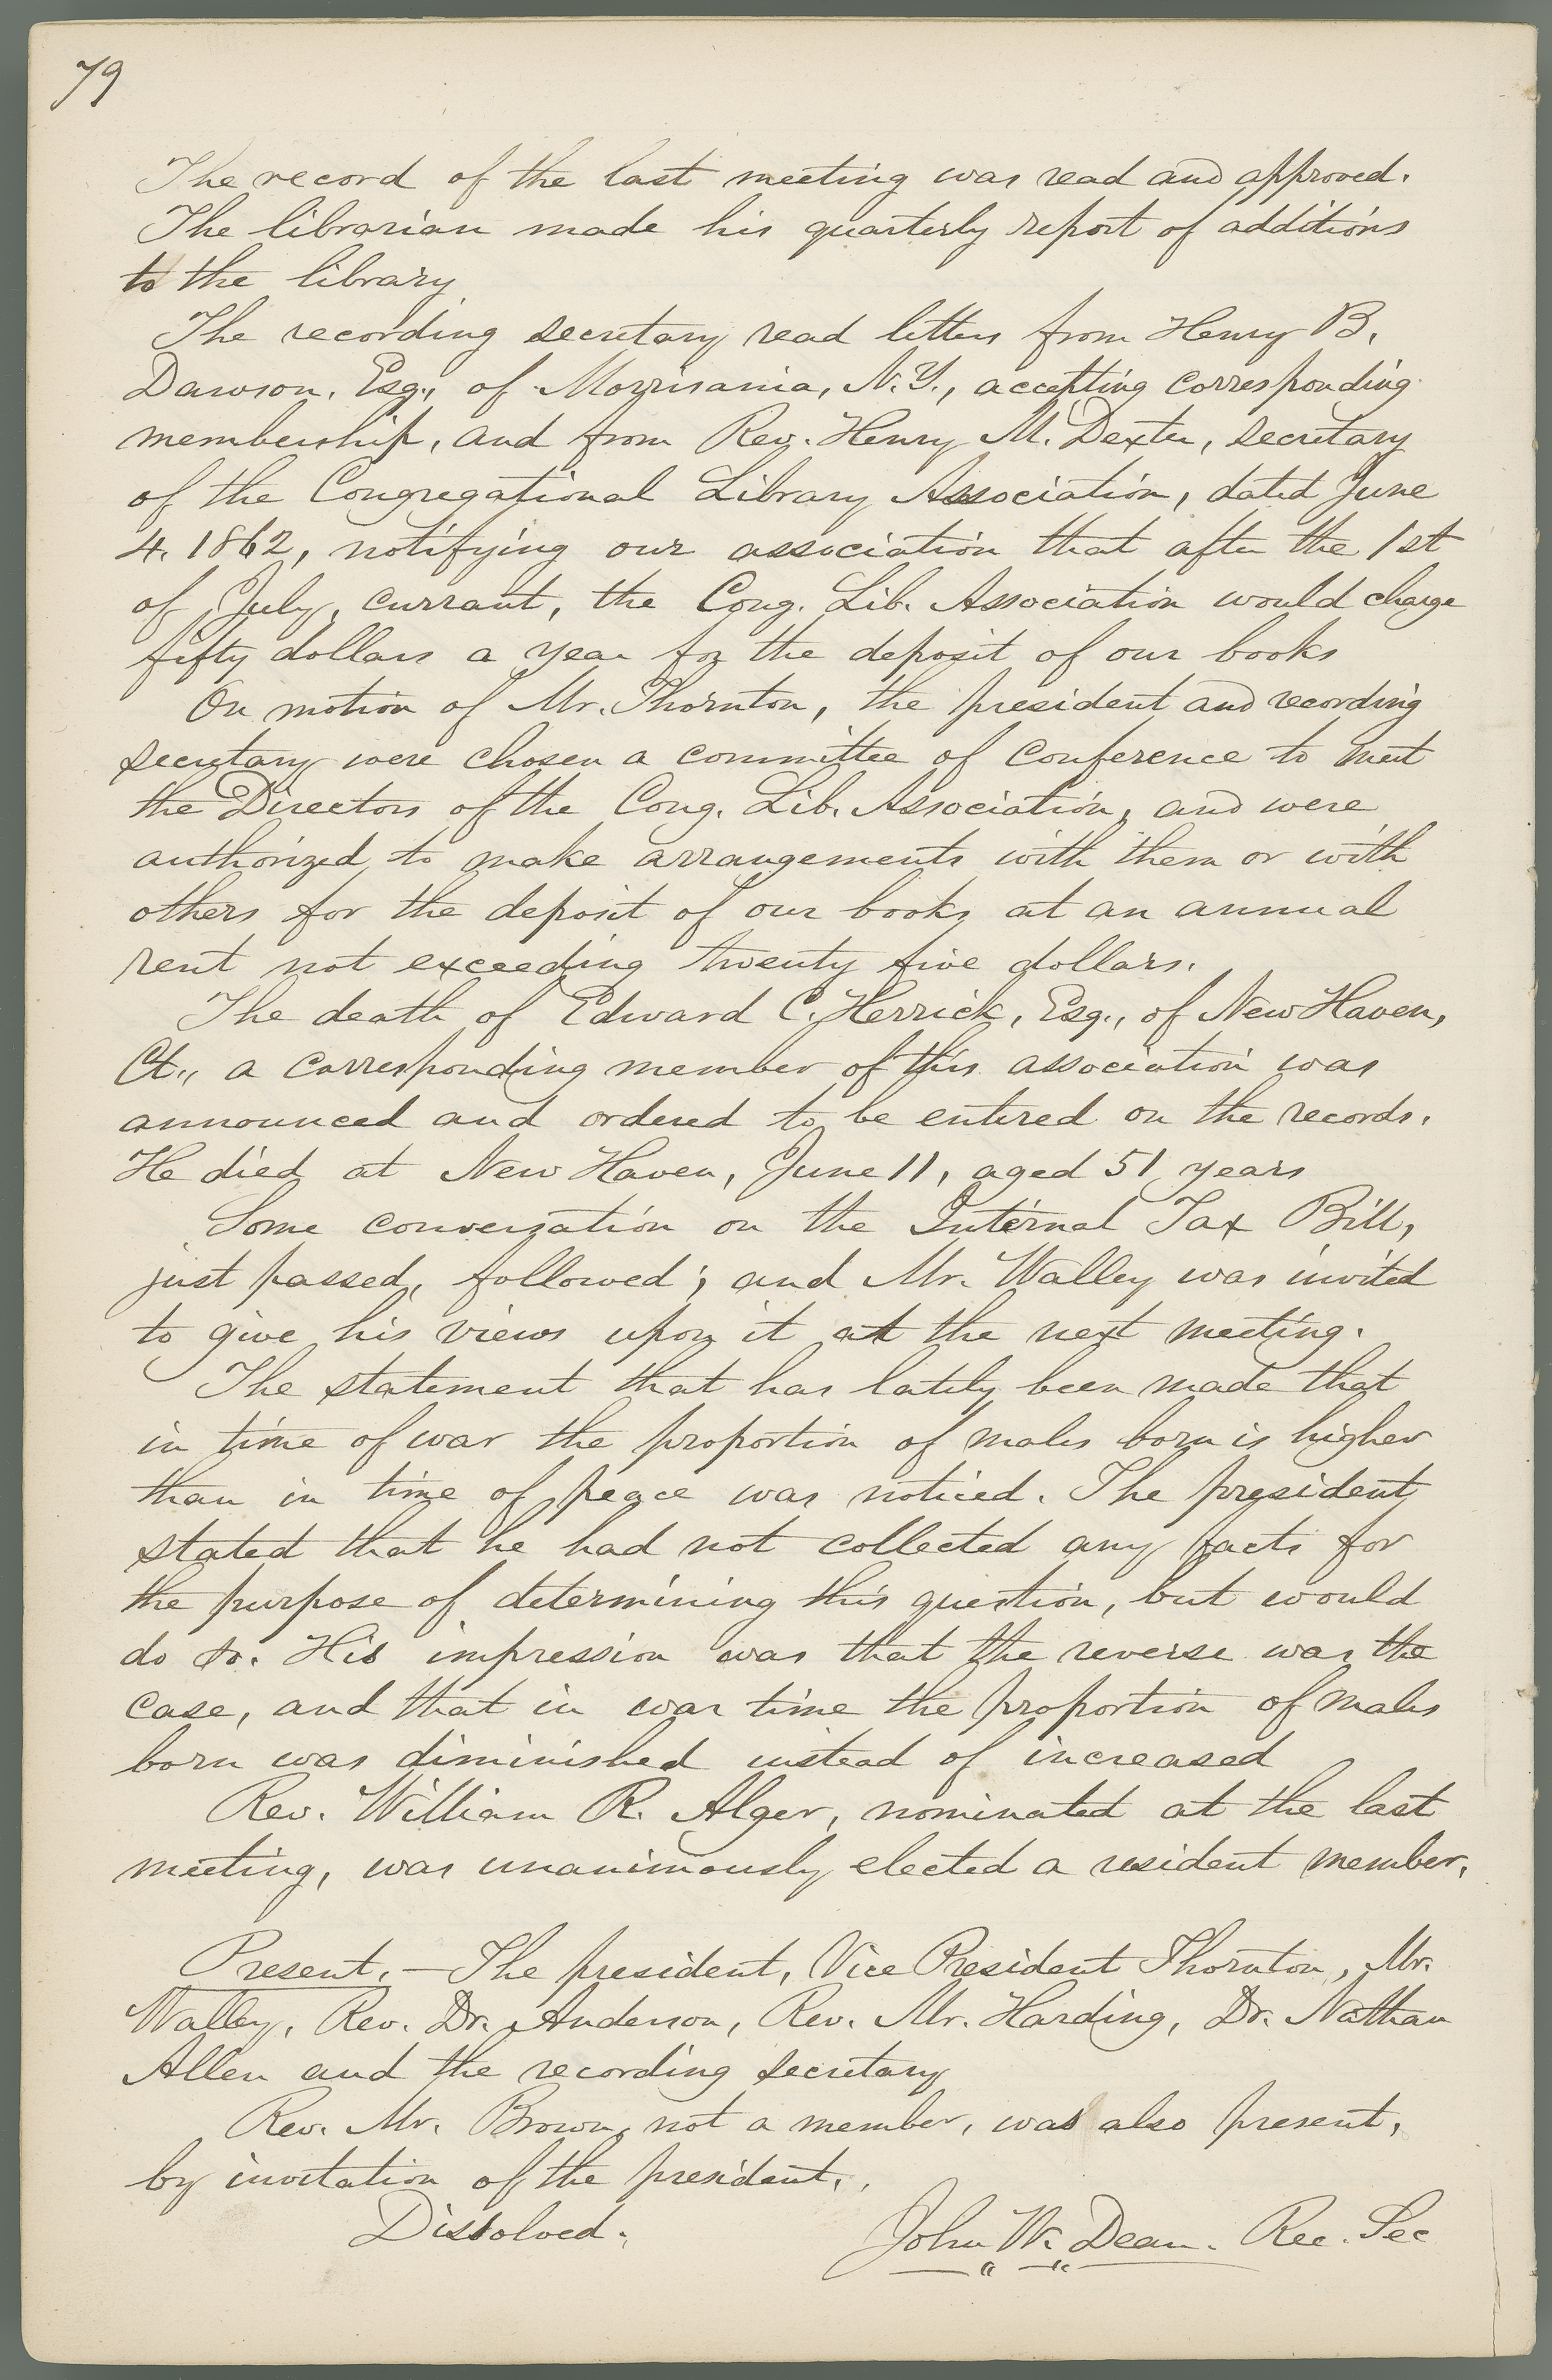 79
The record of the last meeting was read and approved.
The librarian made his quarterly report of additions
to the library
The recording secretary read letters from Henry B.
Dawson, Esq., of Morrisania, N.Y., accepting corresponding
membership, and from Rev. Henry M. Dexter, secretary
of the Congregational Library Association, dated June
4. 1862, notifying our association that after the 1st
of July, currant, the Cong. Lib. Association would charge
fifty dollars a year for the deposit of our books
On motion of Mr. Thornton, the president and recording
secretary were chosen a committee of conference to meet
the Directors of the Cong. Lib. Association, and were
authorized to make arrangements with them or with
others for the deposit of our books at an annual
rent not exceeding twenty five dollars.
The death of Edward C. Herrick, Esq., of New Haven,
Ct., a corresponding member of this association was
announced and ordered to be entered on the records.
He died at New Haven, June 11, aged 51 years
Some conversation on the Internal Tax Bill,
just passed, followed; and Mr. Walley was invited
to give his views upon it at the next meeting.
The statement that has lately been made that
in time of war the proportion of males born is higher
than in time of peace was noticed. The president
stated that he had not collected any facts for
the purpose of determining this question, but would
do so. His impression was that the reverse was the
case, and that in war time the proportion of males
born was diminished instead of increased
Rev. William R. Alger, nominated at the last
meeting, was unanimously elected a resident member.
Present. — The president, Vice President Thornton, Mr.
Walley, Rev. Dr. Anderson, Rev. Mr. Harding, Dr. Nathan
Allen and the recording secretary
Rev. Mr. Brown, not a member, was also present,
by invitation of the president.
Dissolved.
John W. Dean. Rec. Sec